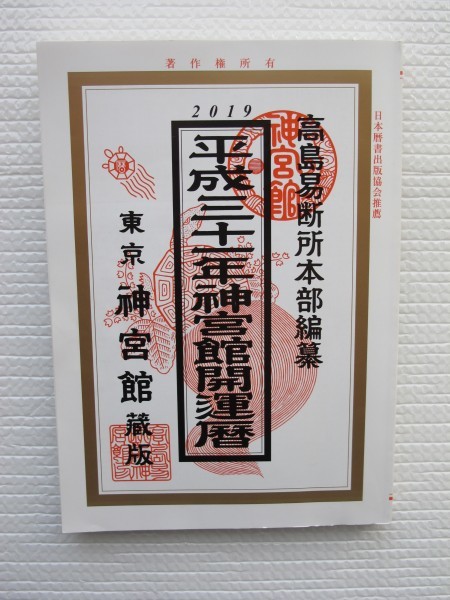 著作権所有
日本暦書出版協会推薦
2019
高島易断所本部編纂
神宮館
平成三十一年神宮館開運暦
東京神宮館蔵版